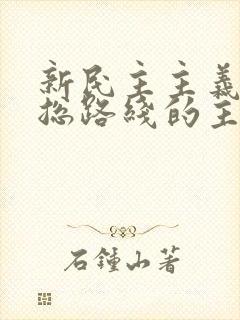 新民主主義
总路綫的主
石鍾山著